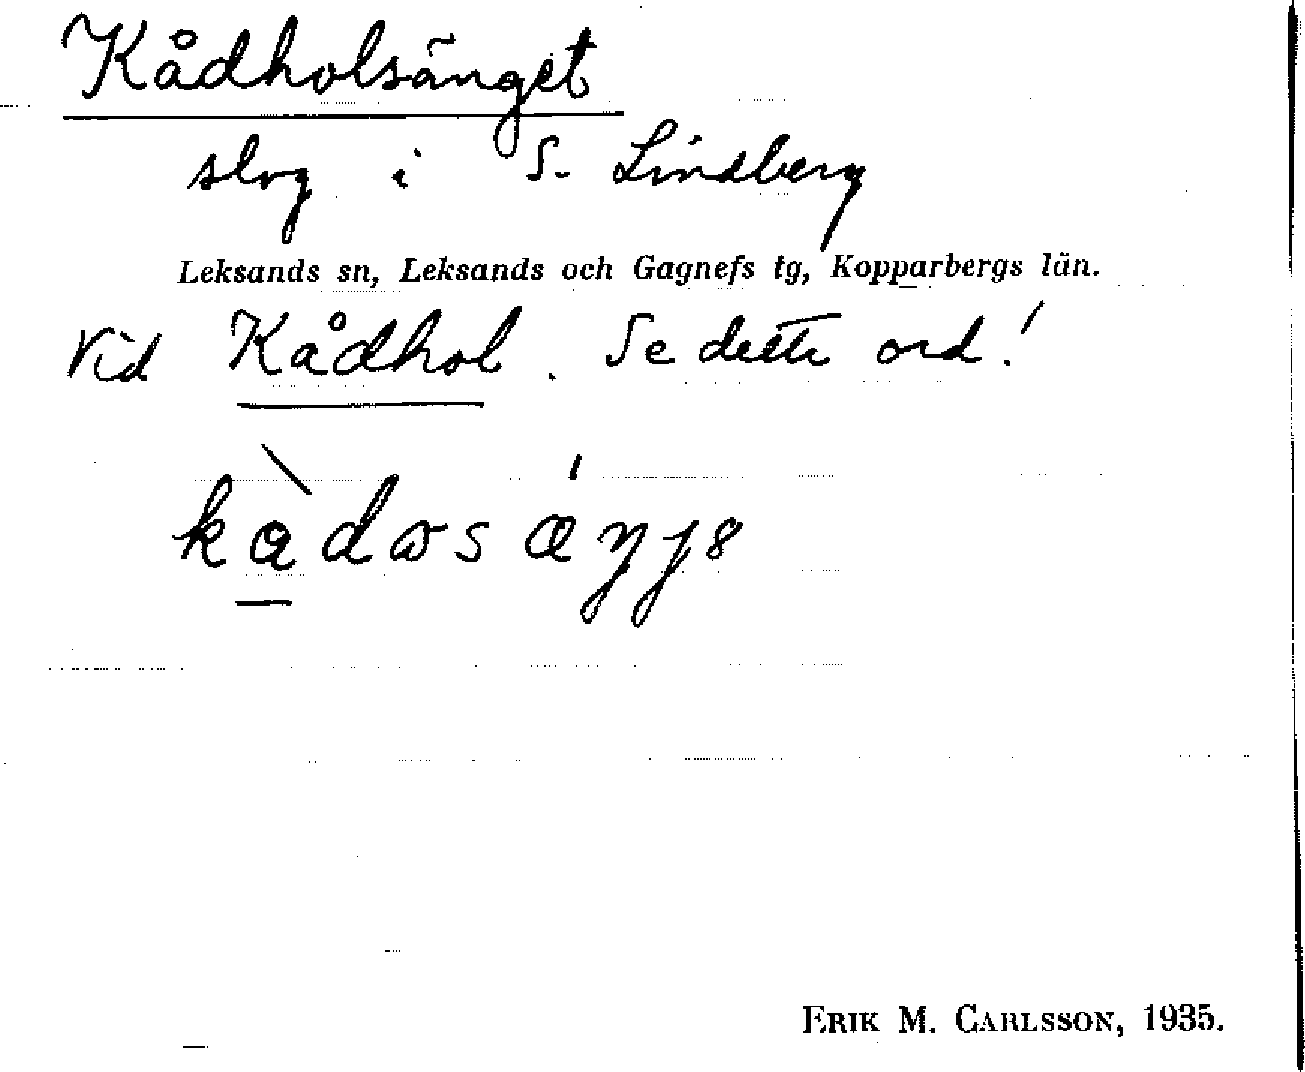 Kådholsänget
slog i S. Lindberg
Leksands sn, Leksands och Gagnefs tg, Kopparbergs län.
Vid Kådhol. Se detta ord!
ERIK M. CARLSSON, 1935.